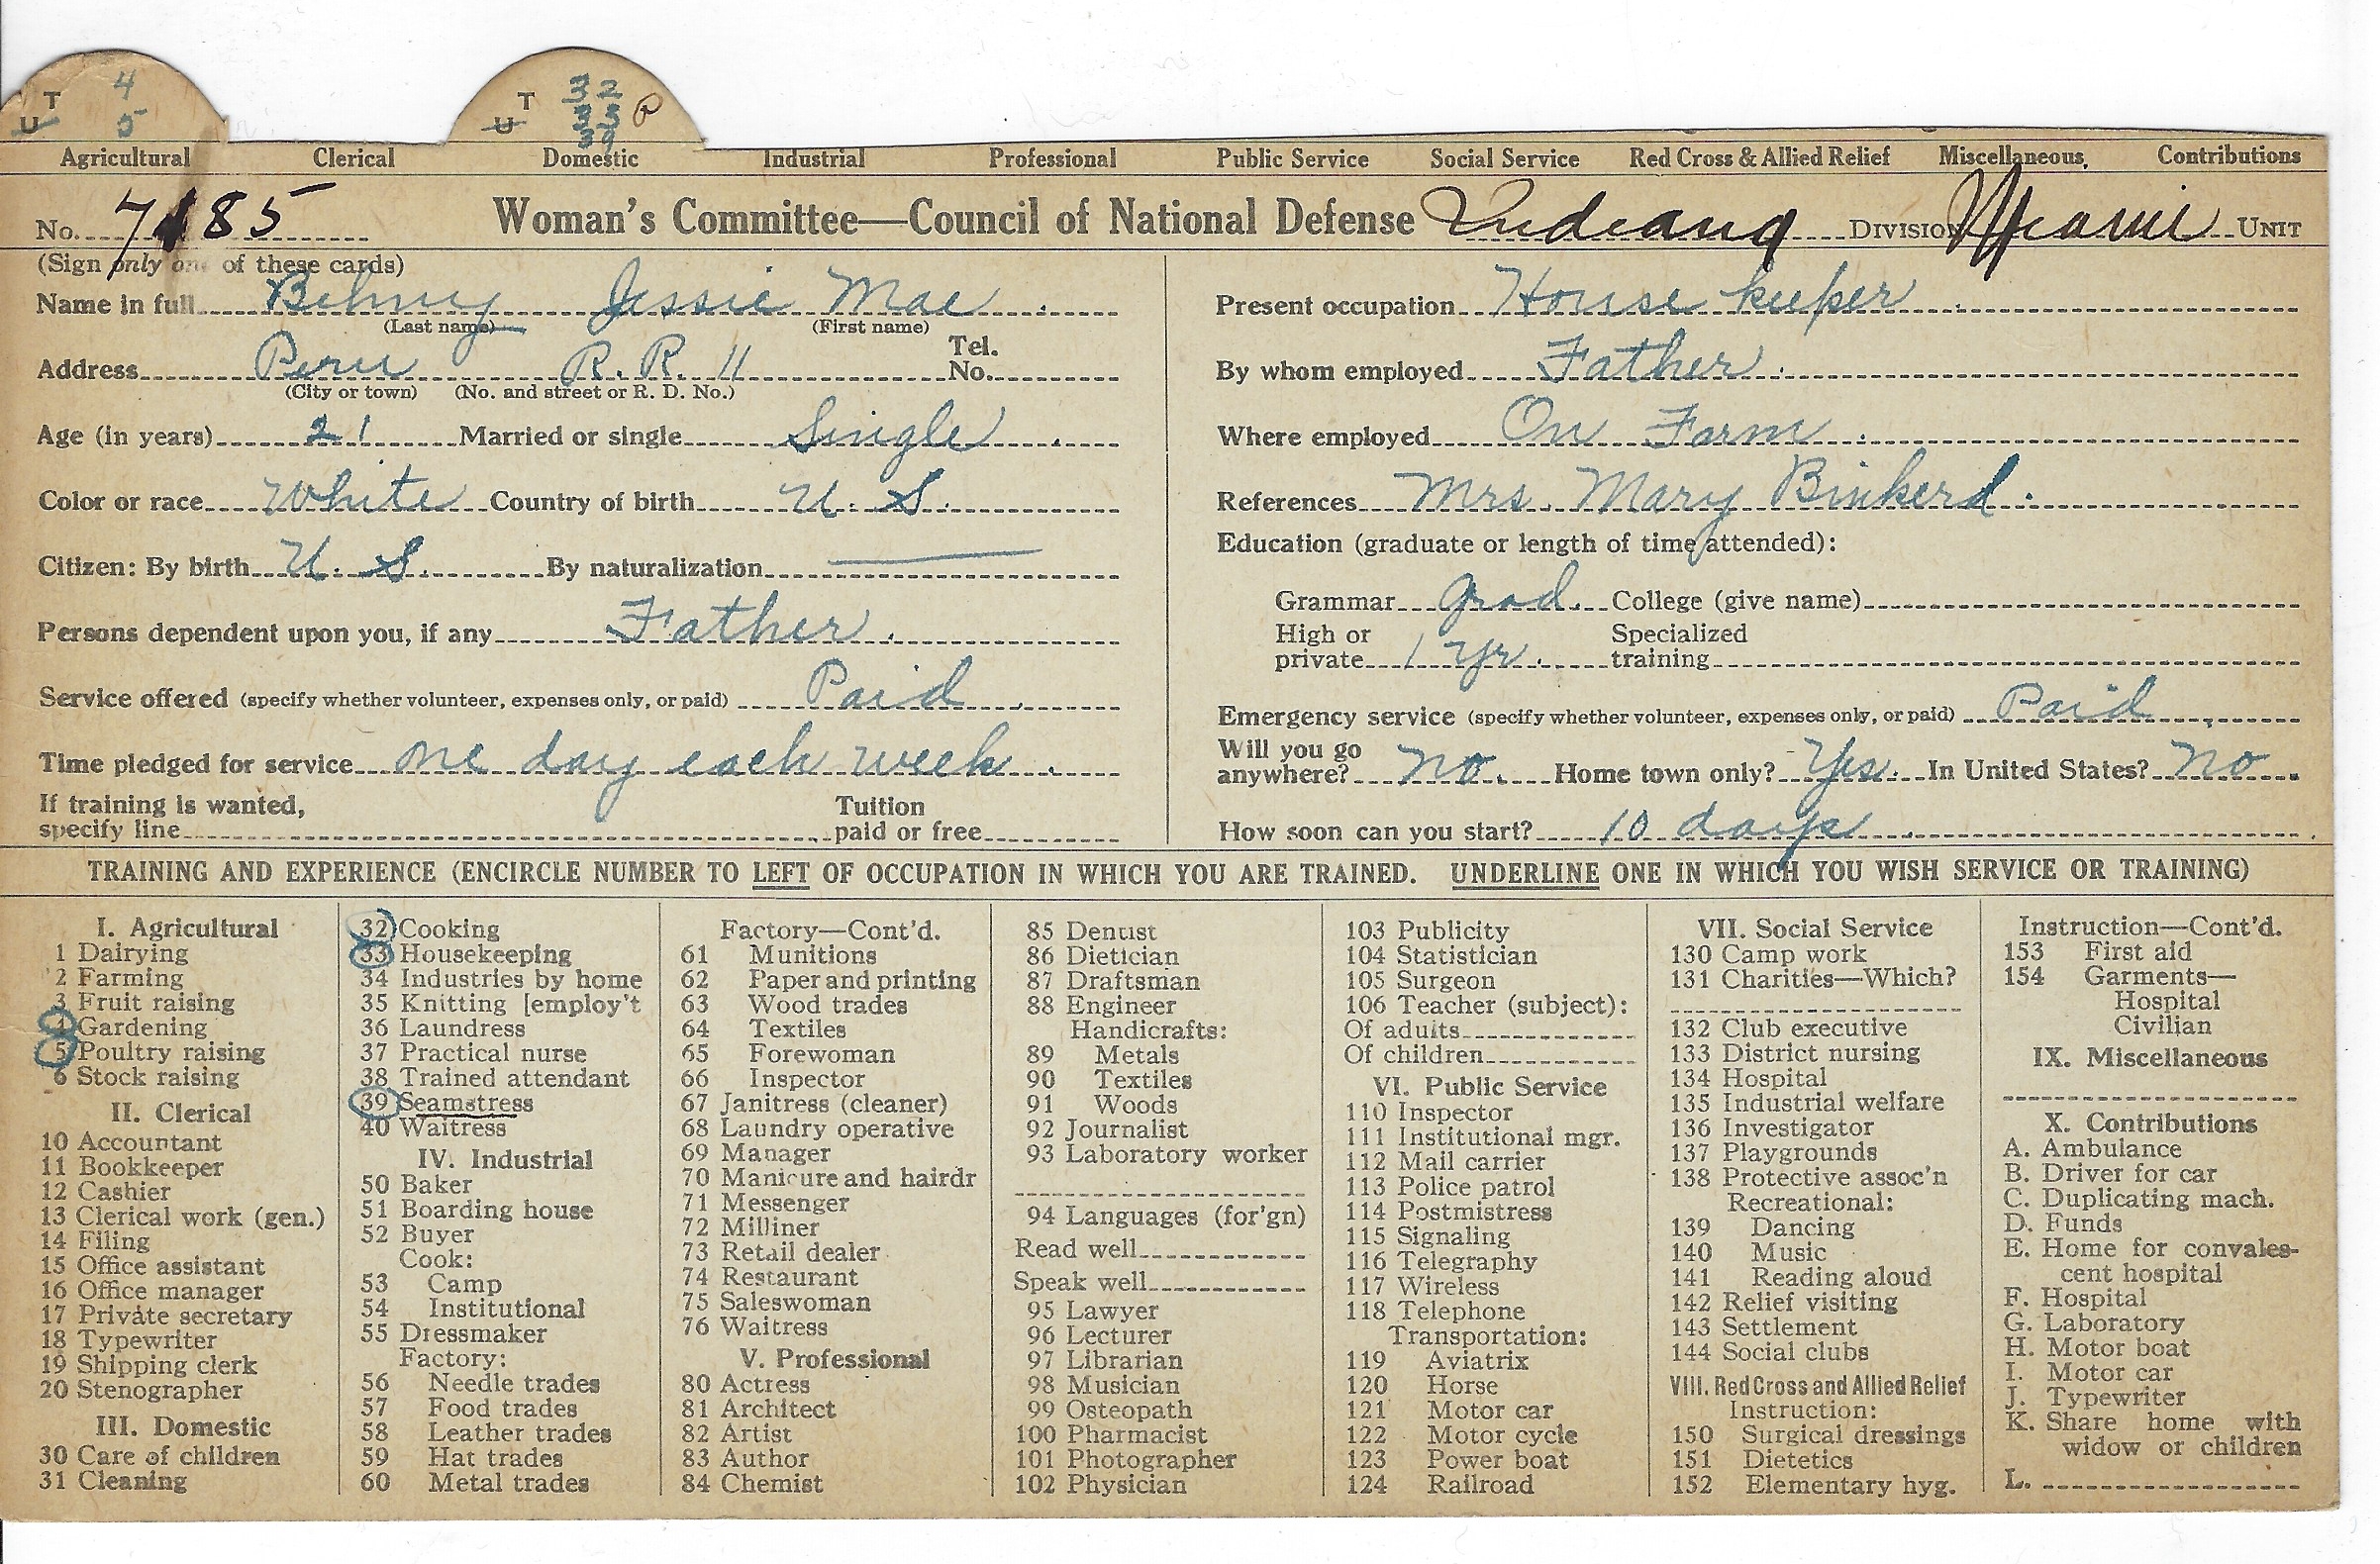 T 4
U 5
T 32
U 33
39
Agricultural Clerical Domestic Industrial Professional Public Service Social Service Red Cross & Allied Relief Miscellaneous Contributions
No. 7185 Woman's Committee—Council of National Defense Indiana Division Miami Unit
(Sign only one of these cards)
Name in full Behny Jessie Mae
(Last name) (First name)
Address Peru R. R. 11 Tel. No.
(City or town) (No. and street or R. D. No.)
Age (in years) 21 Married or single Single
Color or race White Country of birth U. S.
Citizen: By birth U. S. By naturalization
Persons dependent upon you, if any Father
Service offered (specify whether volunteer, expenses only, or paid) Paid
Time pledged for service one day each week
If training is wanted, specify line Tuition paid or free
Present occupation House keeper
By whom employed Father
Where employed On Farm
References Mrs. Mary Binkerd
Education (graduate or length of time attended):
Grammar grad. College (give name)
High or private 1 yr. Specialized training
Emergency service (specify whether volunteer, expenses only, or paid) Paid
Will you go anywhere? no. Home town only? Yes. In United States? no
How soon can you start? 10 days
TRAINING AND EXPERIENCE (ENCIRCLE NUMBER TO LEFT OF OCCUPATION IN WHICH YOU ARE TRAINED. UNDERLINE ONE IN WHICH YOU WISH SERVICE OR TRAINING)
I. Agricultural
1 Dairying
2 Farming
3 Fruit raising
4 Gardening
5 Poultry raising
6 Stock raising
II. Clerical
10 Accountant
11 Bookkeeper
12 Cashier
13 Clerical work (gen.)
14 Filing
15 Office assistant
16 Office manager
17 Private secretary
18 Typewriter
19 Shipping clerk
20 Stenographer
III. Domestic
30 Care of children
31 Cleaning
32 Cooking
33 Housekeeping
34 Industries by home
35 Knitting [employ't
36 Laundress
37 Practical nurse
38 Trained attendant
39 Seamstress
40 Waitress
IV. Industrial
50 Baker
51 Boarding house
52 Buyer
Cook:
53 Camp
54 Institutional
55 Dressmaker
Factory:
56 Needle trades
57 Food trades
58 Leather trades
59 Hat trades
60 Metal trades
Factory—Cont'd.
61 Munitions
62 Paper and printing
63 Wood trades
64 Textiles
65 Forewoman
66 Inspector
67 Janitress (cleaner)
68 Laundry operative
69 Manager
70 Manicure and hairdr
71 Messenger
72 Milliner
73 Retail dealer
74 Restaurant
75 Saleswoman
76 Waitress
V. Professional
80 Actress
81 Architect
82 Artist
83 Author
84 Chemist
85 Dentist
86 Dietician
87 Draftsman
88 Engineer
Handicrafts:
89 Metals
90 Textiles
91 Woods
92 Journalist
93 Laboratory worker
94 Languages (for'gn)
Read well
Speak well
95 Lawyer
96 Lecturer
97 Librarian
98 Musician
99 Osteopath
100 Pharmacist
101 Photographer
102 Physician
103 Publicity
104 Statistician
105 Surgeon
106 Teacher (subject):
Of adults
Of children
VI. Public Service
110 Inspector
111 Institutional mgr.
112 Mail carrier
113 Police patrol
114 Postmistress
115 Signaling
116 Telegraphy
117 Wireless
118 Telephone
Transportation:
119 Aviatrix
120 Horse
121 Motor car
122 Motor cycle
123 Power boat
124 Railroad
VII. Social Service
130 Camp work
131 Charities—Which?
132 Club executive
133 District nursing
134 Hospital
135 Industrial welfare
136 Investigator
137 Playgrounds
138 Protective assoc'n
Recreational:
139 Dancing
140 Music
141 Reading aloud
142 Relief visiting
143 Settlement
144 Social clubs
VIII. Red Cross and Allied Relief
Instruction:
150 Surgical dressings
151 Dietetics
152 Elementary hyg.
Instruction—Cont'd.
153 First aid
154 Garments—
Hospital
Civilian
IX. Miscellaneous
X. Contributions
A. Ambulance
B. Driver for car
C. Duplicating mach.
D. Funds
E. Home for convales-
cent hospital
F. Hospital
G. Laboratory
H. Motor boat
I. Motor car
J. Typewriter
K. Share home with
widow or children
L.